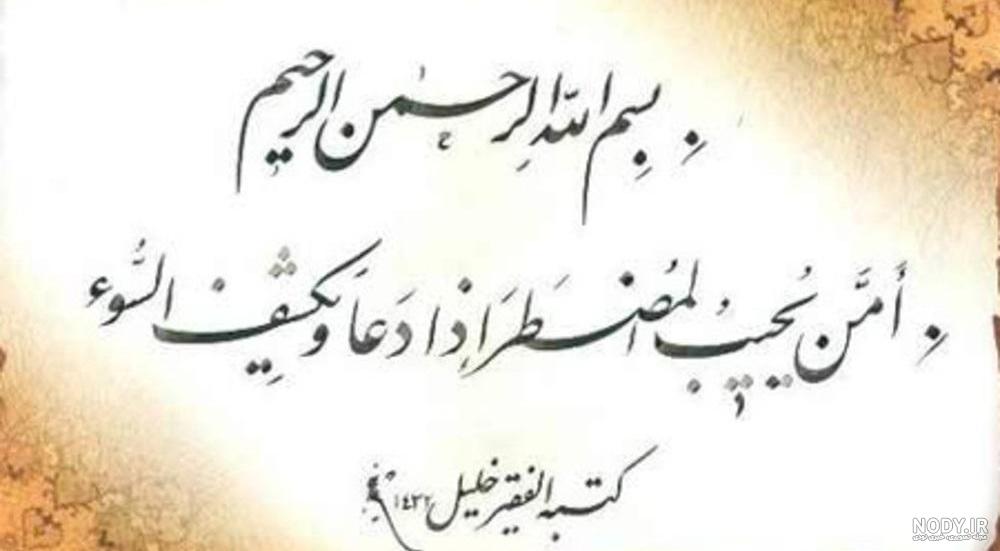 بسم الله الرحمن الرحیم
أَمَّن یُجیبُ المُضطَرَ اِذا دَعَا وَیکشِف السُّوء
کتبه الفقیر خلیل ١٤٣٢
NODY.IR